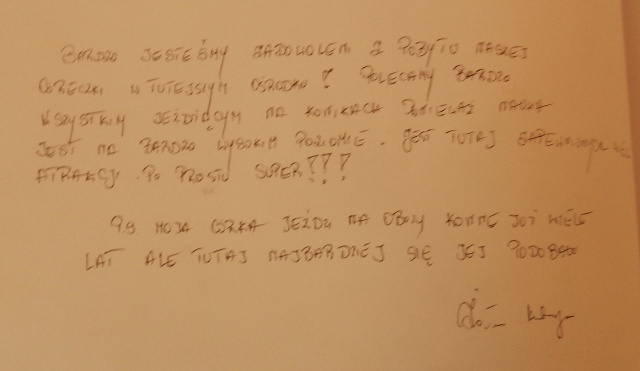 BARDZO JESTEŚMY ZADOWOLENI Z POBYTU NASZEJ
CÓRECZKI W TUTEJSZYM OŚRODKU! POLECAMY BARDZO
WSZYSTKIM JEŻDŻĄCYM NA KONIKACH PONIEWAŻ NAUKA
JEST NA BARDZO WYSOKIM POZIOMIE. JEST TUTAJ ZAPEWNIONYCH
ATRAKCJI. PO PROSTU SUPER!!!
P.S MOJA CÓRKA JEŹDZI NA OBOZY KONNE JUŻ WIELE
LAT ALE TUTAJ NAJBARDZIEJ SIĘ JEJ PODOBAŁO